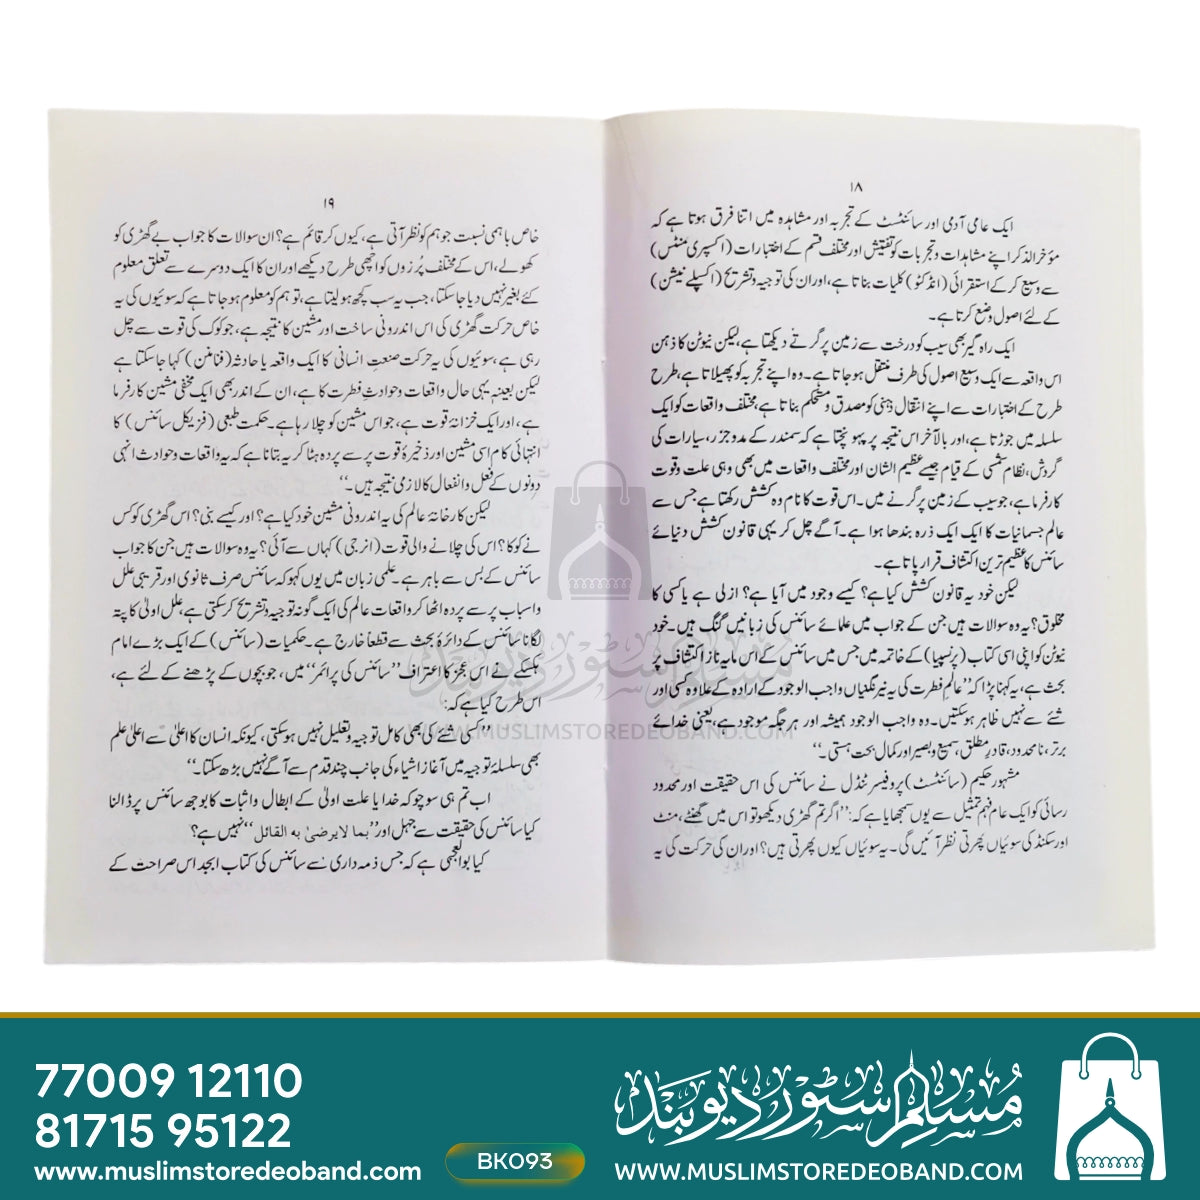 ۱۸
ایک عامی آدمی اور سائنٹسٹ کے تجربہ اور مشاہدہ میں اتنا فرق ہوتا ہے کہ
مؤخر الذکر اپنے مشاہدات و تجربات کو تفتیش اور مختلف قسم کے اختبارات (اکسپری منٹس)
سے وسیع کر کے استقرائی (انڈکٹو) کلیات بناتا ہے، اور ان کی توجیہ و تشریح (اکسپلے نیشن)
کے لئے اصول وضع کرتا ہے۔
ایک راہ گیر بھی سیب کو درخت سے زمین پر گرتے دیکھتا ہے، لیکن نیوٹن کا ذہن
اس واقعہ سے ایک وسیع اصول کی طرف منتقل ہو جاتا ہے۔ وہ اپنے تجربہ کو پھیلاتا ہے، طرح
طرح کے اختبارات سے اپنے انتقال ذہنی کو مصدق و مستحکم بناتا ہے، مختلف واقعات کو ایک
سلسلہ میں جوڑتا ہے، اور بالآخر اس نتیجہ پر پہونچتا ہے کہ سمندر کے مدوجزر، سیارات کی
گردش، نظام شمسی کے قیام جیسے عظیم الشان اور مختلف واقعات میں بھی وہی علت وقوت
کارفرما ہے، جو سیب کے زمین پر گرنے میں۔ اس قوت کا نام وہ کشش رکھتا ہے جس سے
عالم جسمانیات کا ایک ایک ذرہ بندھا ہوا ہے۔ آگے چل کر یہی قانون کشش دنیائے
سائنس کا عظیم ترین اکتشاف قرار پاتا ہے۔
لیکن خود یہ قانون کشش کیا ہے؟ کیسے وجود میں آیا ہے؟ ازلی ہے یا کسی کا
مخلوق؟ یہ وہ سوالات ہیں جن کے جواب میں علمائے سائنس کی زبانیں گنگ ہیں۔ خود
نیوٹن کو اپنی اسی کتاب (پرنسپیا) کے خاتمہ میں جس میں سائنس کے اس مایہ ناز اکتشاف پر
بحث ہے، یہ کہنا پڑا کہ ”عالم فطرت کی یہ نیرنگیاں واجب الوجود کے ارادہ کے علاوہ کسی اور
شئے سے نہیں ظاہر ہو سکتیں۔ وہ واجب الوجود ہمیشہ اور ہر جگہ موجود ہے، یعنی خدائے
برتر، نامحدود، قادر مطلق، سمیع و بصیر اور کمال بحت ہستی۔“
مشہور حکیم (سائنٹسٹ) پروفیسر ٹنڈل نے سائنس کی اس حقیقت اور محدود
رسائی کو ایک عام فہم تمثیل سے یوں سمجھایا ہے کہ: ”اگر تم گھڑی دیکھو تو اس میں گھنٹے، منٹ
اور سکنڈ کی سوئیاں پھرتی نظر آئیں گی۔ یہ سوئیاں کیوں پھرتی ہیں؟ اور ان کی حرکت کی یہ
۱۹
خاص باہمی نسبت جو ہم کو نظر آتی ہے، کیوں کر قائم ہے؟ ان سوالات کا جواب بے گھڑی کو
کھولے، اس کے مختلف پُرزوں کو اچھی طرح دیکھے اور ان کا ایک دوسرے سے تعلق معلوم
کئے بغیر نہیں دیا جا سکتا، جب یہ سب کچھ ہو لیتا ہے، تو ہم کو معلوم ہو جاتا ہے کہ سوئیوں کی یہ
خاص حرکت گھڑی کی اس اندرونی ساخت اور مشین کا نتیجہ ہے، جو کوک کی قوت سے چل
رہی ہے، سوئیوں کی یہ حرکت صنعتِ انسانی کا ایک واقعہ یا حادثہ (فنامنن) کہا جا سکتا ہے
لیکن بعینہٖ یہی حال واقعات و حوادثِ فطرت کا ہے، ان کے اندر بھی ایک مخفی مشین کارفرما
ہے، اور ایک خزانۂ قوت ہے، جو اس مشین کو چلا رہا ہے۔ حکمت طبعی (فزیکل سائنس) کا
انتہائی کام اسی مشین اور ذخیرۂ قوت پر سے پردہ ہٹا کر یہ بتانا ہے کہ یہ واقعات و حوادث انہی
دونوں کے فعل وانفعال کا لازمی نتیجہ ہیں۔“
لیکن کارخانۂ عالم کی یہ اندرونی مشین خود کیا ہے؟ اور کیسے بنی؟ اس گھڑی کو کس
نے کوکا؟ اس کی چلانے والی قوت (انرجی) کہاں سے آئی؟ یہ وہ سوالات ہیں جن کا جواب
سائنس کے بس سے باہر ہے۔ علمی زبان میں یوں کہو کہ سائنس صرف ثانوی اور قریبی علل
واسباب پر سے پردہ اٹھا کر واقعات عالم کی ایک گونہ توجیہ و تشریح کر سکتی ہے، علل اولیٰ کا پتہ
لگانا سائنس کے دائرۂ بحث سے قطعاً خارج ہے۔ حکمیات (سائنس) کے ایک بڑے امام
ہکسلے نے اس عجز کا اعتراف ”سائنس کی پرائمر“ میں، جو بچوں کے پڑھنے کے لئے ہے،
اس طرح کیا ہے کہ:
”کسی شئے کی بھی کامل توجیہ و تعلیل نہیں ہو سکتی، کیونکہ انسان کا اعلیٰ سے اعلیٰ علم
بھی سلسلۂ توجیہ میں آغاز اشیاء کی جانب چند قدم سے آگے نہیں بڑھ سکتا۔“
اب تم ہی سوچو کہ خدا یا علت اولیٰ کے ابطال و اثبات کا بوجھ سائنس پر ڈالنا
کیا سائنس کی حقیقت سے جہل اور ”بما لا يرضىٰ به القائل“ نہیں ہے؟
کیا بوالعجمی ہے کہ جس ذمہ داری نے سائنس کی کتاب ابجد اس صراحت کے
مسلم سٹور دیوبند
WWW.MUSLIMSTOREDEOBAND.COM
77009 12110
81715 95122
www.muslimstoredeoband.com
BK093
مسلم سٹور دیوبند
WWW.MUSLIMSTOREDEOBAND.COM